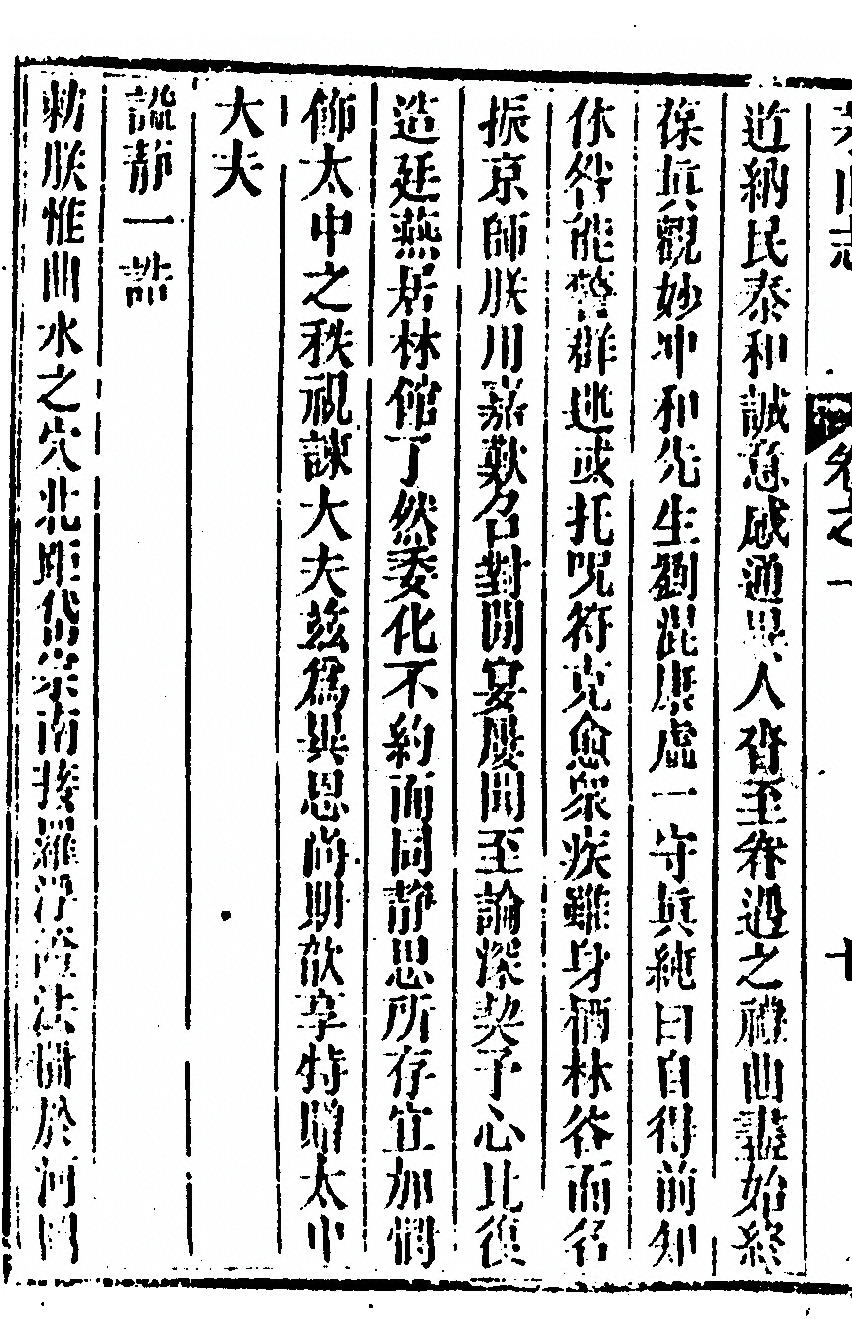 茅山志 卷之一 十
道納民泰和誠意感通異人胥至眷遇之禮曲盡始終
葆真觀妙冲和先生劉混康虛一守真純白自得前知
休咎能警群迷或托呪符克愈衆疾雖身栖林谷而名
振京師朕用嘉歎召對閒宴屢聞至論深契予心比復
造廷燕居林館了然委化不約而同靜思所存宜加憫
飾太中之秩視諫大夫兹爲異恩尚期歆享特贈太中
大夫
謚靜一誥
勑朕惟曲水之穴北距岱宗南接羅浮證法開於河圖